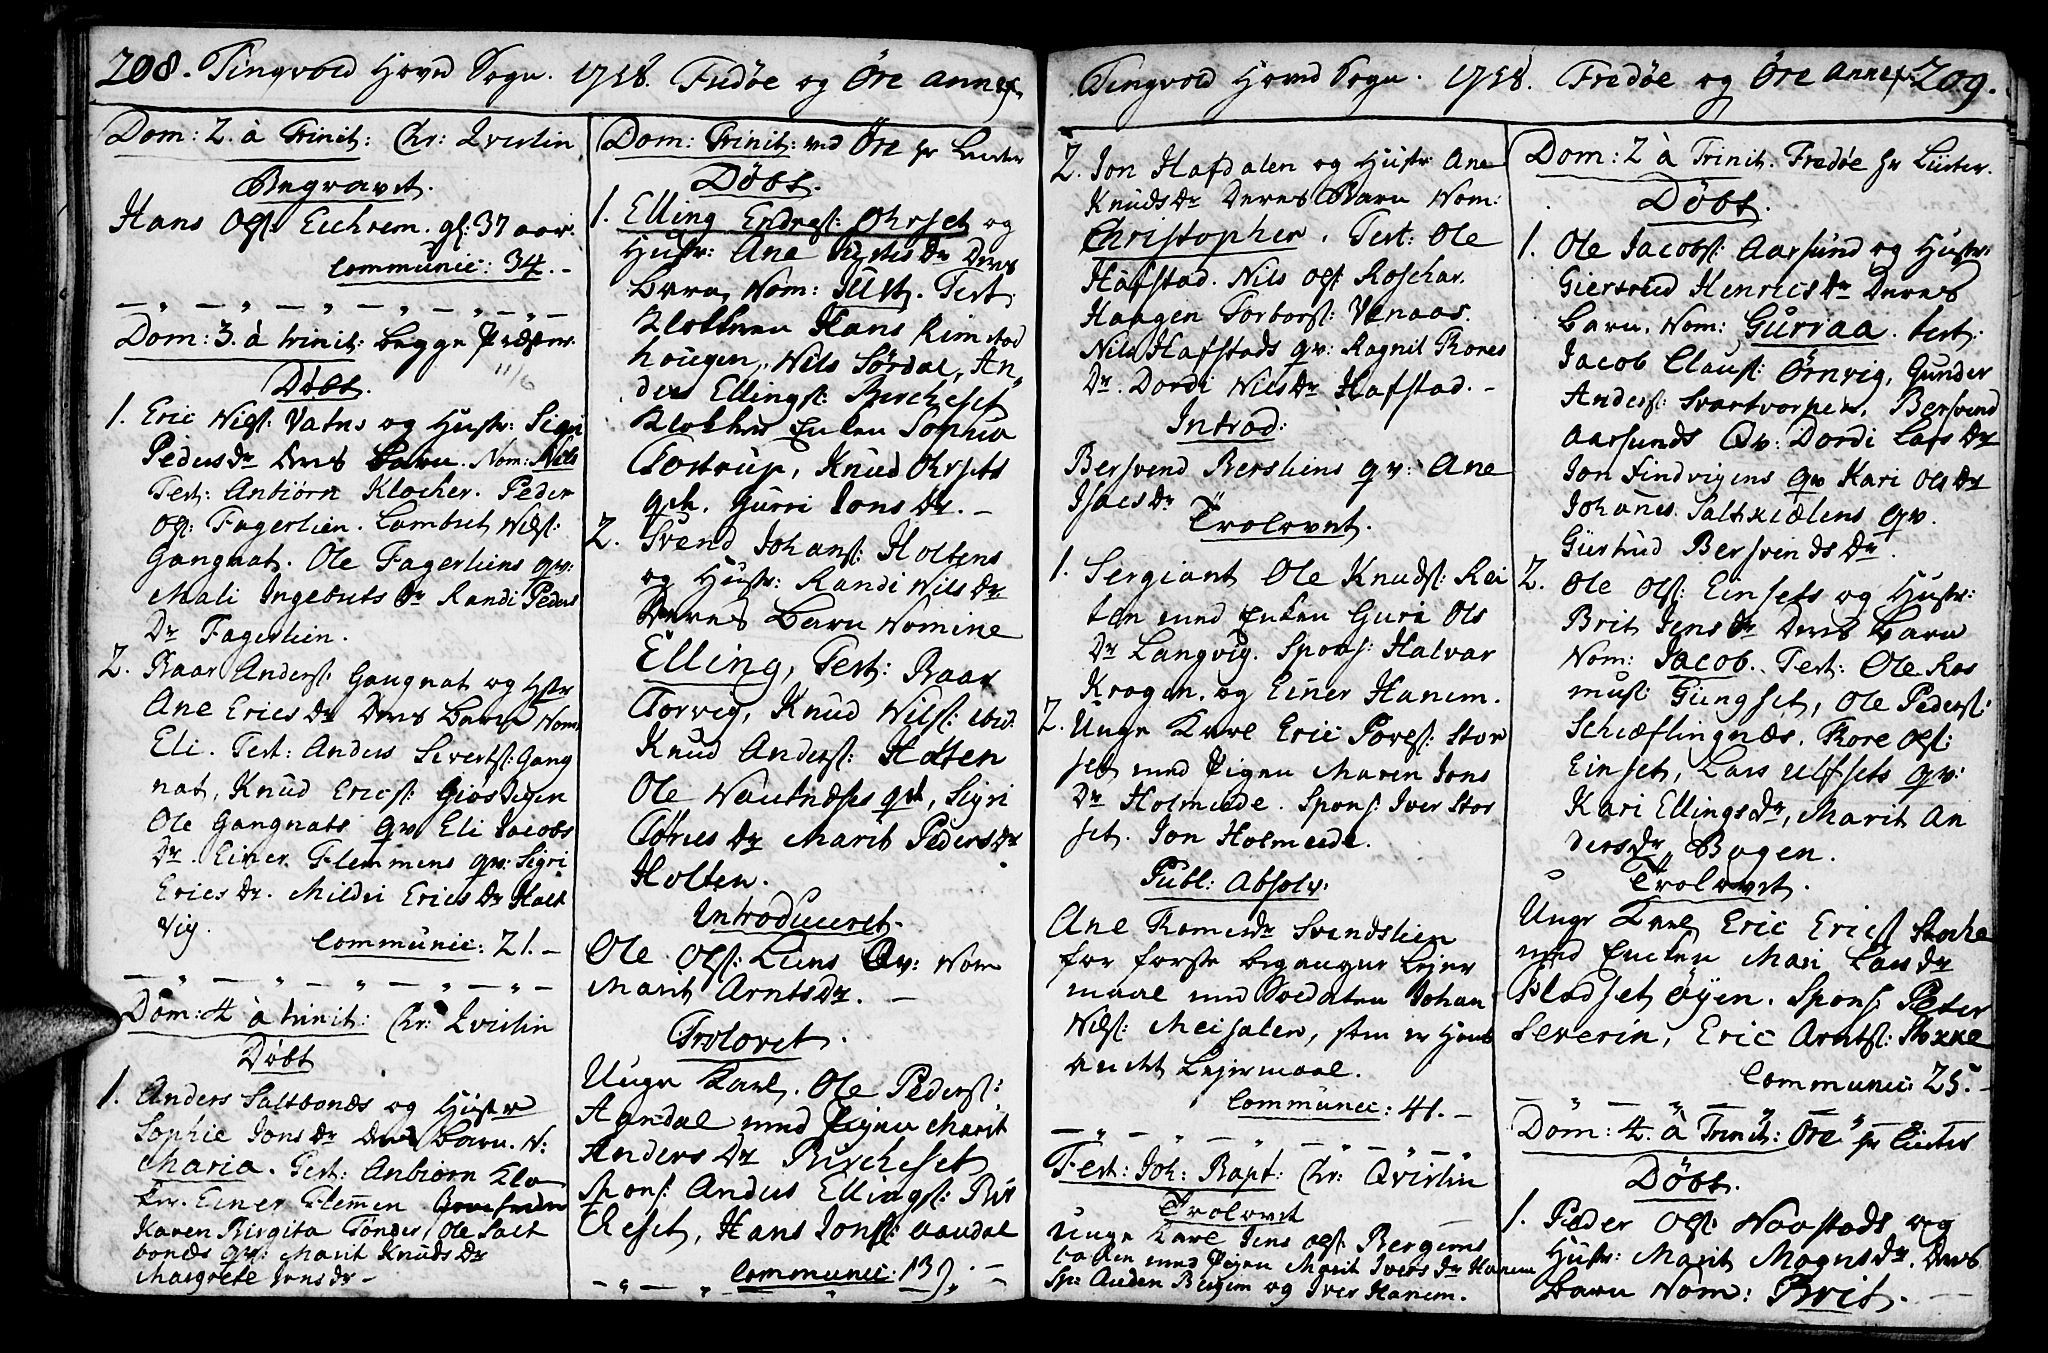 208. Tingvold Hovd Sogn. 1758. Fredøe og Öre annex.
Dom: 2. à Trinit: Chr: Qvislin
Begravet.
Hans Ols: Eichrem. gl: 37 aar.
Communic: 34. -
Dom: 3. à trinit: begge Præster.
11/6
Døbt.
1. Eric Nils: Vatns og Hustr: Sigri
Peders Dr Deres barn. Nom: Nils
Test: Anbiörn Klocher. Peder
Ols: Fagerlien. Lambret Nils:
Gangnat. Ole Fagerliens qv:
Mali Ingebrets Dr Randi Peders
Dr Fagerlien.
2. Baar Anders: Gangnat og Hustr
Ane Erics Dr Deres barn Nom
Eli. Test: Anders Siverts: Gang
nat, Knud Erics:
Ole Gangnats qv Eli Jacobs
Dr. Einer Flemmens qv: Sigri
Erics Dr. Mildri Erics Dr Holt
vig.
Communic: 21. -
Dom: 4. à trinit: Chr: Qvislin
Døbt
1. Anders Saltbonæs og Hustr
Sophie Jons Dr Deres barn. N:
Maria. Test: Anbiörn Klo
ker. Einer Flemmen
Karen Birgita Tønder, Ole Salt
bonæs qv: Marit Knuds Dr
Margrete Jons Dr -
Dom: Trinit: ved Öre hr Lyster
Døbt.
1. Elling Endres: Ohrset og
Hustr: Ane Dr Deres
barn, Nom: Test:
Klokkeren Hans Rimstad
hougen, Nils Sördal, An
ders Ellings: Bircheset
Klokker Enken Sophia
Tostrup, Knud Ohrsets
qv. Gurri Jons Dr. -
2. Svend Johans: Holtens
og Hustr: Randi Nils Dr
Deres barn Nomine
Elling, Test: Baar
Torvig, Knud Nils: ibid:
Knud Anders: Holten
Ole Nautnæses qv, Sigri
Töries Dr Marit Peders Dr
Holten.
Introduceret.
Ole Ols: Liens Qv: Nom
Marit Arnts Dr. -
Trolovet.
Unge Karl. Ole Peders:
Aandal med Pigen Marit
Anders Dr Bircheset
Spons: Anders Ellings: Bir
cheset, Hans Jons: Aandal
Communic: 139. -
Tingvold Hovd Sogn. 1758. Fredøe og Öre Annex: 209.
2. Jon Hafdalen og Hustr Ane
Knuds Dr Deres Barn Nom:
Christopher. Test: Ole
Hafstad. Nils Ols Roschar.
Haagen Torbers: Venaas.
Nils Hafstads qv: Ragnil Tores
Dr. Dordi Nils Dr Hafstad. -
Introd:
Bersvend Berstiens qv: Ane
Isacs Dr
Trolovet.
1. Sergiant Ole Knuds: Rei
ten med Enken Guri Ols
Dr Langvig. Spons: Halvar
Krogen. og Einer Hanem.
2. Unge Karl Eric Povels: Stor
set med Pigen Maren Jons
Dr Holmeide. Spons: Iver Stor
set. Jon Holmeide.
Publ: Absolv:
Ane Tomes Dr Svendslien
for første begangne Lejer
maal med Soldaten Johan
Nils: Meisalen, som er hendes
andet Lejermaal.
Communic: 41. -
Fest: Joh: Bapt: Chr: Qvislin
Trolovet
Unge Karl Jens Ols: Bergems
bakken med Pigen Marit Ivers Dr Hanem
Sp: Anders Bergem og Iver Hanem.
Dom: 2 à Trinit. Fredøe hr Lyster.
Døbt.
1. Ole Jacobs: Aarsund og Hustr:
Giertrud Henrics Dr Deres
barn. Nom: Gurriaa. test:
Jacob Claus: Örnvig, Gunder
Anders: Svartvorpen. Bersvend
Aarsunds Qv: Dordi Lars Dr
Jon Findvigens qv Kari Ols Dr
Johanes Saltkiælens qv.
Giertrud Bersvends Dr.
2. Ole Ols: Einsets og Hustr:
Brit Jens Dr Deres barn
Nom: Jacob. Test: Ole Ras
mus: Giengset, Ole Peders:
Schæflingnæs. Tore Ols:
Einset, Lars Ulfsets qv:
Kari Ellings Dr, Marit An
ders Dr Bogen.
Trolovet.
Unge Karl Eric Erics: Stoche
med Enken Mari Lars Dr
Pladset öyen. Spons: Peter
Severin, Eric Arnts: Stokke
Communic: 25. -
Dom: 4. à Trinit: Öre hr Lyster
Døbt.
1. Peder Ols: Naastads og
Hustr: Marit Mogns Dr. Deres
barn Nom: Brit. -